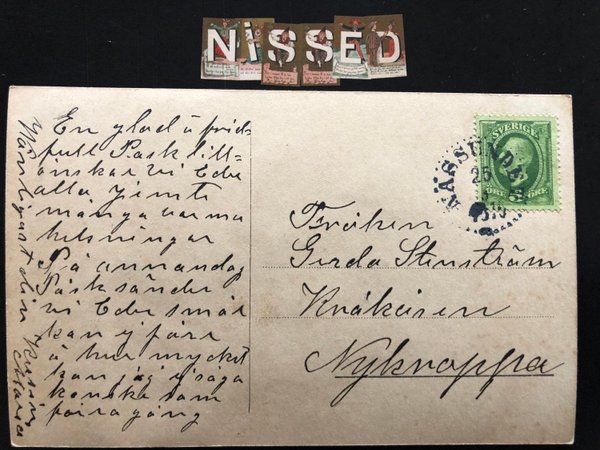 NISSED
En glad å frid-
full Påsk till-
önskar vi Eder
alla jemte
många varma
helsningar
På annandag
Påsk sänder
vi Eder
kan
å hur mycket
kan jag ej säga
kanske som
förra gång
Vänligast din Kusin
Maria
SVERIGE
5 ÖRE
NÄSSUNDET
Fröken
Gerda Stenström
Knåkåsen
Nykroppa